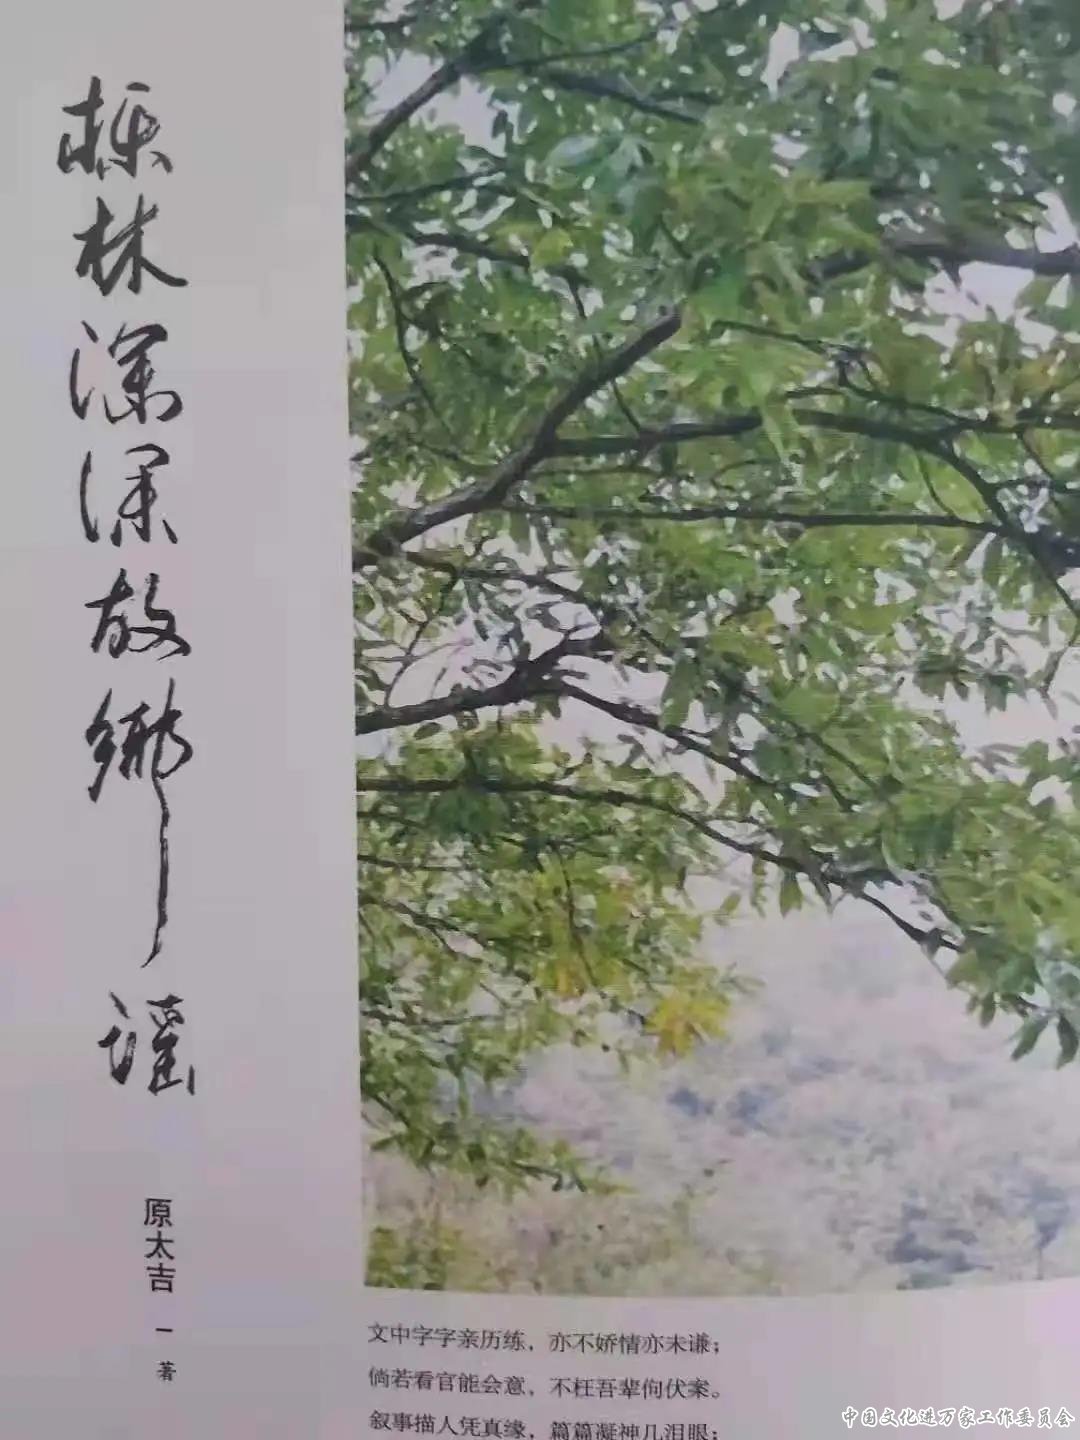 栎林深深故乡谣
原太吉 一 著
文中字字亲历练，亦不娇情亦未谦；
倘若看官能会意，不枉吾辈佝伏案。
叙事描人凭真缘，篇篇凝神几泪眼；
中国文化进万家工作委员会